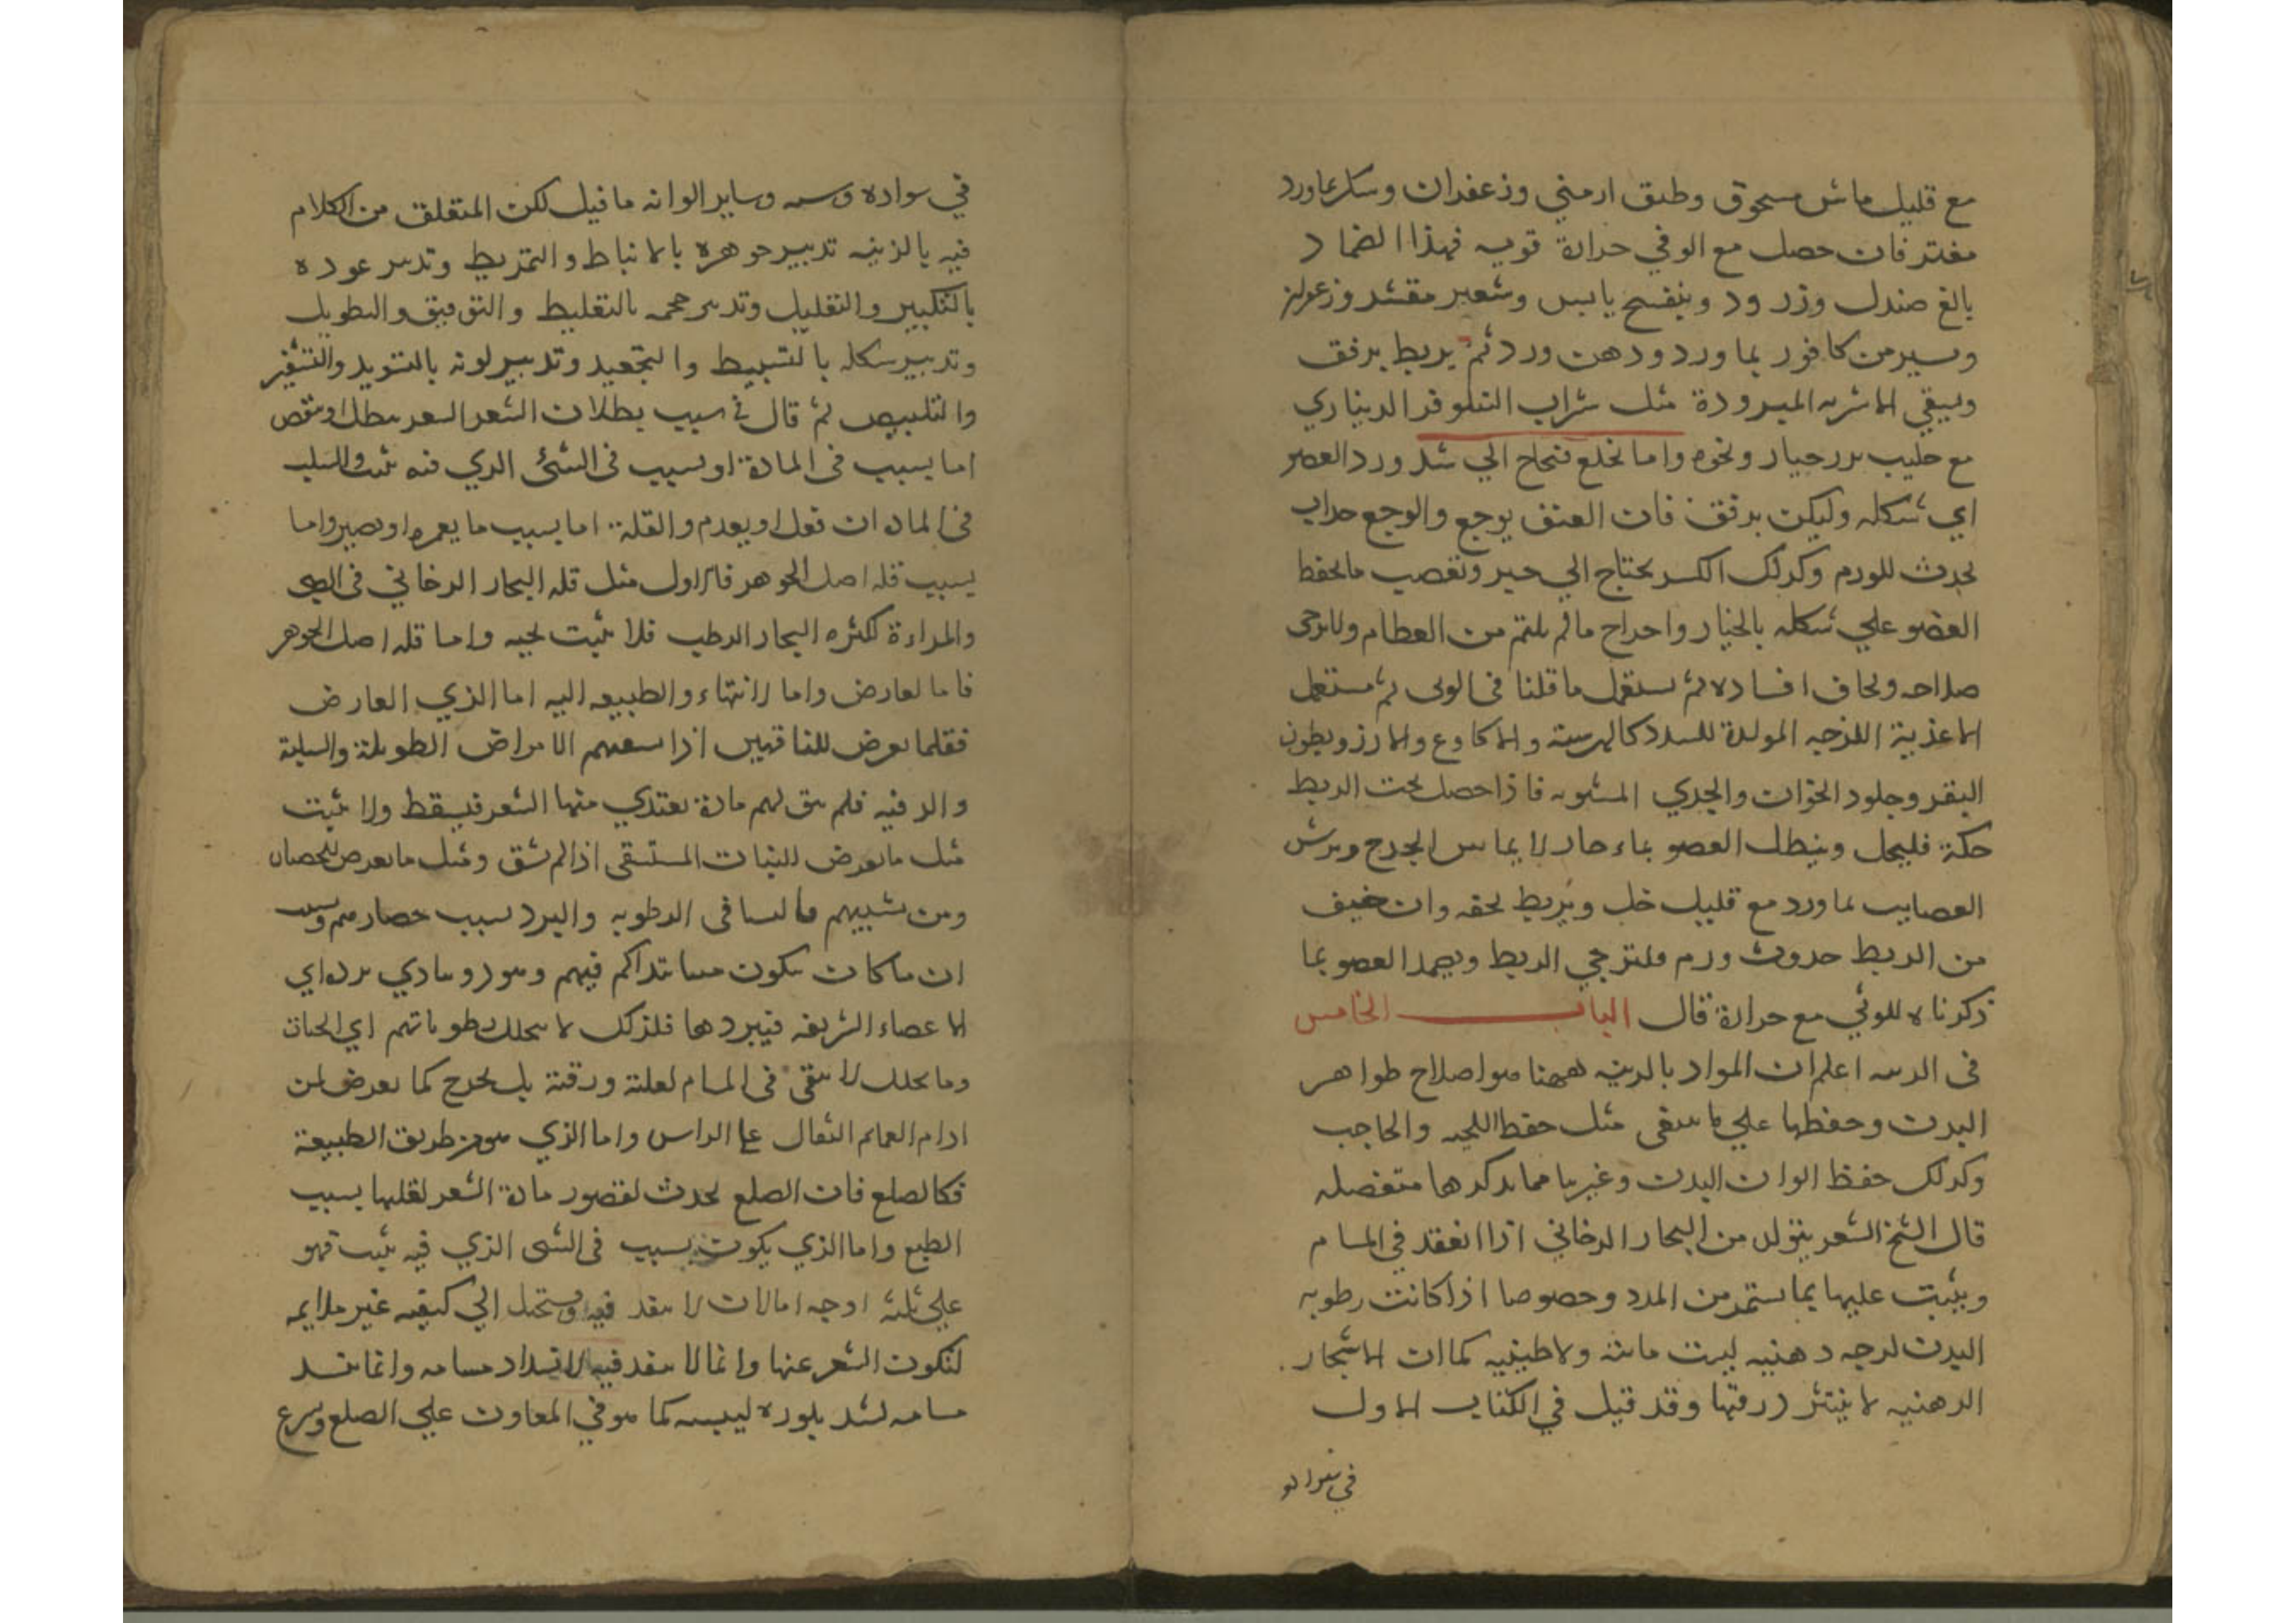 مع قليل ماش مسحوق وطين ارمني وزعفران وسكر بماورد
مفتر فان حصل مع الوثي حرارة قويه فهذا الضماد
بالغ صندل وزر ورد وبنفسج يابس وشعير مقشر وزعفران
وسير من كافور بما ورد ودهن ورد ثم يربط برفق
وسقي الاشربه المبرودة مثل شراب النيلوفر الديناري
مع حليب بزر خيار ونحوه واما الخلع فيحتاج الي شد ورد العضو
اي شكله وليكن برفق فان العنف يوجع والوجع جداب
يحدث للورم وكدلك الكسر يحتاج الي جبر وتعصيب ما يحفظ
العضو علي شكله بالخيار واخراج ما لم يلتئم من العظام ولا يرجى
صلاحه ويخاف افساده ثم يستعمل ما قلنا في الوثي ثم يستعمل
الاغذية اللزجه المولدة للسدد كالهريسة والاكارع والارز وبطون
البقر وجلود الخرفان والجدي المشويه فاذا حصل تحت الربط
حكة فليحل وينطل العضو بماء حار لا يماس الجرح ويرش
العصايب بما ورد مع قليل خل ويربط بخفه وان خيف
من الربط حدوث ورم فليرخي الربط ويضمد العضو بما
ذكرناه للوثي مع حرارة قال الباب الخامس
في الزينه اعلم ان المراد بالزينه ههنا هو اصلاح ظواهر
البدن وحفظها علي ما ينبغي مثل حفظ اللحيه والحاجب
وكدلك حفظ الوان البدن وغيرها مما يدكرها متفصله
قال الشيخ الشعر يتولد من البخار الدخاني اذا انعقد في المسام
وينبت عليها بما يستمر من المدد وخصوصا اذا كانت رطوبه
البدن لزجه دهنيه ليست مائيه ولا طينيه كما ان الاشجار
الدهنيه لا ينتثر ورقها وقد قيل في الكتاب الاول
في سواده
في سواده وسـه وساير الوانه ما قيل لكن المتعلق من الكلام
فيه بالزينه تدبير جوهره بالانباط والتمريط وتدبير عوده
بالتكبير والتقليل وتدبير حجمه بالتغليظ والترقيق والتطويل
وتدبير شكله بالتسبيط والتجعيد وتدبير لونه بالتسويد والتشقير
والتبييض ثم قال في سبب بطلان الشعر الشعر يبطل او ينقص
اما بسبب في المادة او بسبب في الشئ الدي فيه ينبت والسبب
في المادة ان تقل او يعدم والقلة اما بسبب ما يغمره او يصير واما
بسبب قلة اصل الجوهر فالاول مثل قله البخار الدخاني في الصبي
والمراءة لكثره البخار الرطب فلا ينبت لحيه واما قله اصل الجوهر
فاما لعارض واما لانتهاء والطبيعه اليه اما الذي العارض
فقلما يعرض للناقهين اذا اسقمهم الامراض الطويلة والسلية
والدقيه فلم يبق لهم مادة يغتدي منها الشعر فيسقط ولا ينبت
مثل ما يعرض للنبات المستسقى اذا لم يسق ومثل ما يعرض للخصيان
ومن يشبههم فالنسا في الرطوبه والبرد بسبب خصارهم وبسبب
ان ما كان يكون منيا يتراكم فيهم ويبرد ويتادي برده الي
الاعضاء الشريفه فيبردها فلذلك لا يتحلل رطوباتهم اي الخصيان
وما يتحلل لا يبقى في المسام لغلبة ورقة بل يخرج كما يعرض لمن
ادام العمايم الثقال علي الراس واما الذي هو من طريق الطبيعة
فكالصلع فان الصلع يحدث لقصور مادة الشعر لقلتها بسبب
الطبع واما الذي يكون بسبب في الشي الذي فيه ينبت فهو
علي ثلثه اوجه اما لان لا ينفد فيه ويستحيل الي كيفيه غير ملايمه
لتكون الشعر عنها وانما لا ينفد فيه لانسداد مسامه وانما تنسد
مسامه لشد يلوره ليبسه كما هو في المعاون علي الصلع وسرع